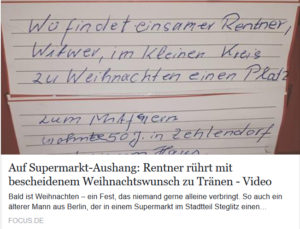 Wo findet einsamer Rentner,
Witwer, im kleinen Kreis
zu Weihnachten einen Platz
zum Mitfeiern
wohne 50 J. in Zehlendorf
Auf Supermarkt-Aushang: Rentner rührt mit
bescheidenem Weihnachtswunsch zu Tränen - Video
Bald ist Weihnachten – ein Fest, das niemand gerne alleine verbringt. So auch ein
älterer Mann aus Berlin, der in einem Supermarkt im Stadtteil Steglitz einen...
FOCUS.DE